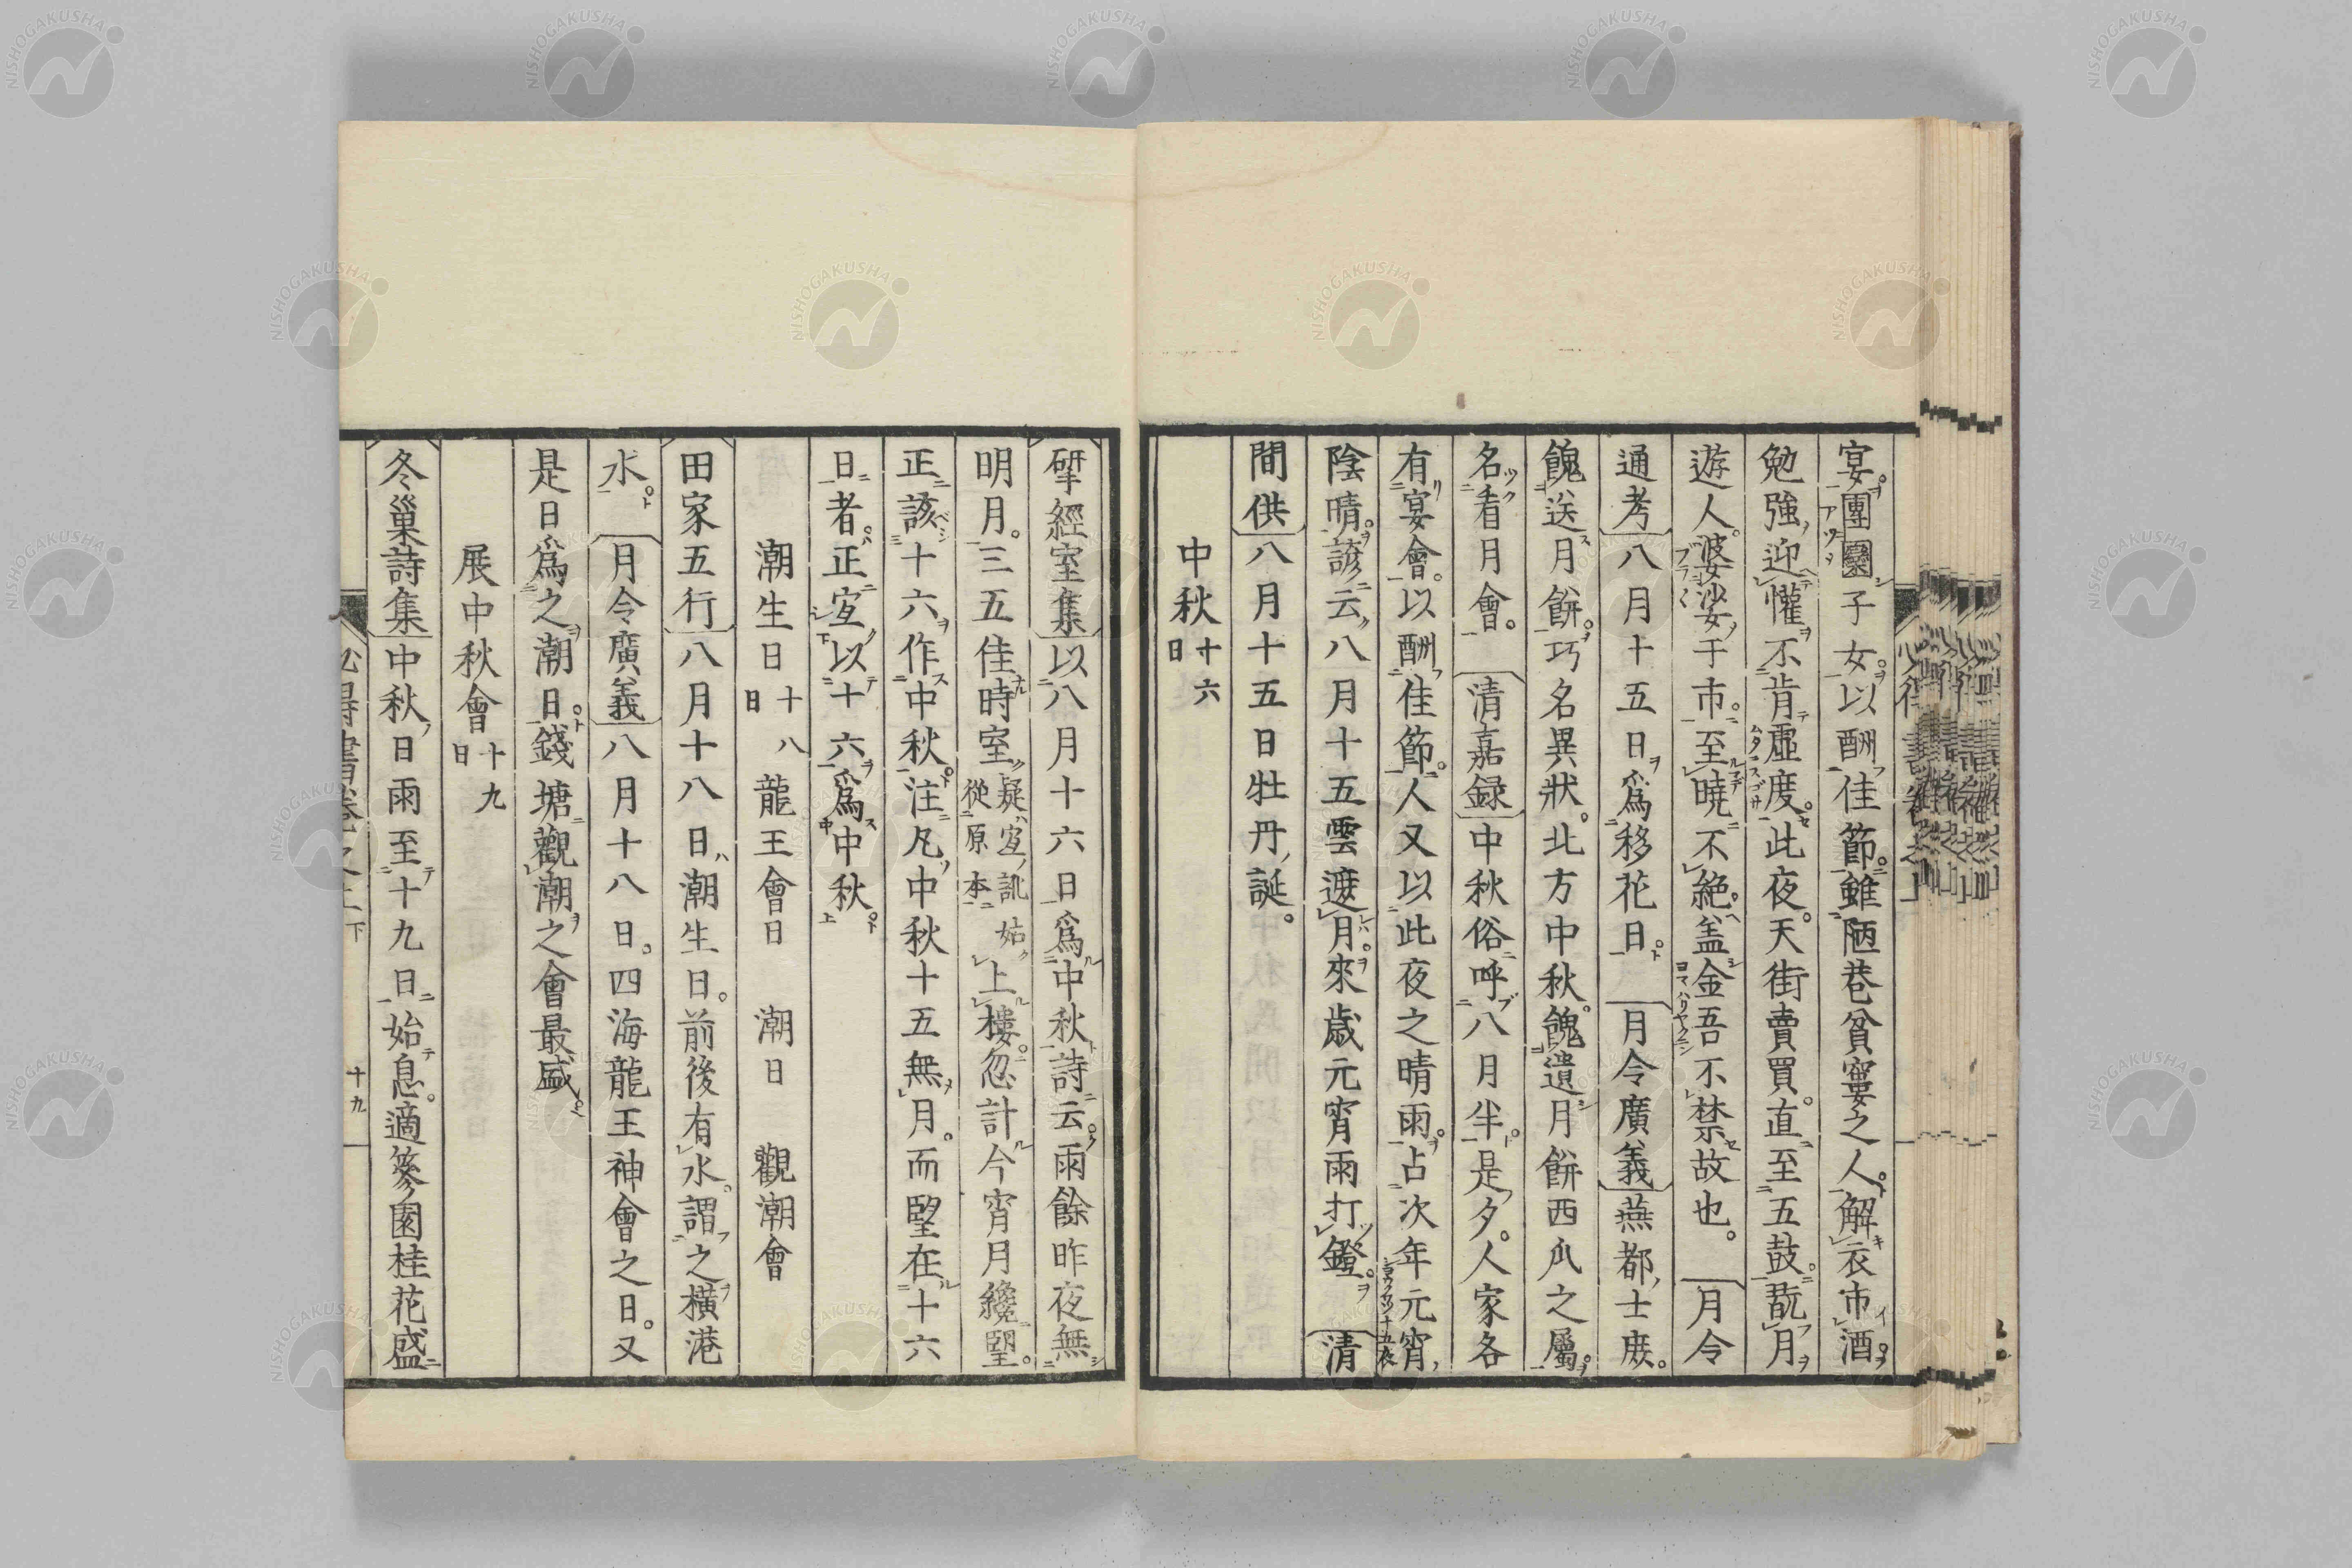 宴團圞子女以酬佳節雖陋巷貧窶之人解衣市酒
勉強迎懽不肯虛度此夜天街賣買直至五鼓翫月
遊人婆娑于市至曉不絕盖金吾不禁故也。月令
通考八月十五日爲移花日月令廣義燕都士庶。
餽送月餅巧名異狀北方中秋餽遺月餅西瓜之屬
名看月會。清嘉録中秋俗呼八月半是夕人家各
有宴會。以酬佳節。人又以此夜之晴雨占次年元宵
陰晴諺云八月十五雲遮月來歲元宵雨打鐙清
間供八月十五日牡丹誕。
中秋十六日
揅經室集以八月十六日爲中秋詩云雨餘昨夜無
明月。三五佳時室疑宜訛姑從原本上樓忽計今宵月纔望。
正該十六作中秋注凡中秋十五無月。而望在十六
日者正宜以十六爲中秋
潮生日十八日 龍王會日 潮日 觀潮會
田家五行八月十八日潮生日。前後有水謂之橫港
水月令廣義八月十八日四海龍王神會之日。又
是日爲之潮日錢塘觀潮之會最盛
展中秋會十九日
冬巢詩集中秋日雨至十九日始息。適篸園桂花盛
十九
NISHOGAKUSHA